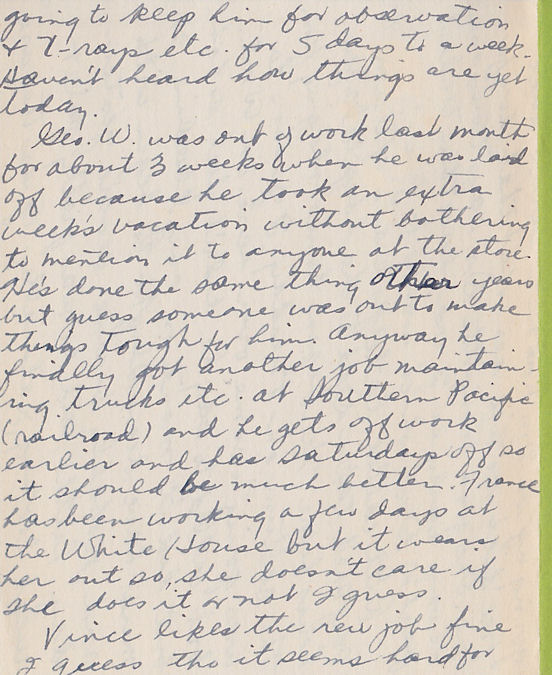 going to keep him for observation
& X-rays etc. for 5 days to a week.
Haven't heard how things are yet
today.
Geo. W. was out of work last month
for about 3 weeks when he was laid
off because he took an extra
week's vacation without bothering
to mention it to anyone at the store.
He's done the same thing other years
but guess someone was out to make
things tough for him. Anyway he
finally got another job maintain-
ing trucks etc. at Southern Pacific
(railroad) and he gets off work
earlier and has Saturdays off so
it should be much better. France
has been working a few days at
the White House but it wears
her out so, she doesn't care if
she does it or not I guess.
Vince likes the new job fine
I guess tho it seems hard for